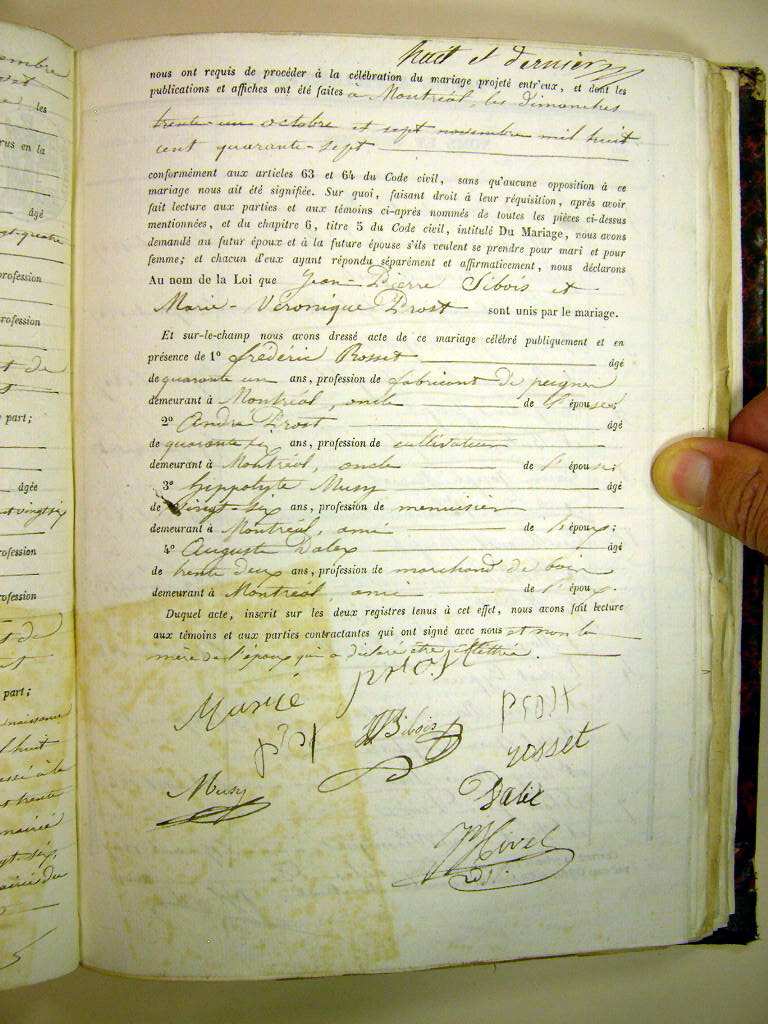 huit et dernier
nous ont requis de procéder à la célébration du mariage projeté entr'eux, et dont les
publications et affiches ont été faites à Montréal, les dimanches
trente-un octobre et sept novembre mil huit
cent quarante-sept
conformément aux articles 63 et 64 du Code civil, sans qu'aucune opposition à ce
mariage nous ait été signifiée. Sur quoi, faisant droit à leur réquisition, après avoir
fait lecture aux parties et aux témoins ci-après nommés de toutes les pièces ci-dessus
mentionnées, et du chapitre 6, titre 5 du Code civil, intitulé Du Mariage, nous avons
demandé au futur époux et à la future épouse s'ils veulent se prendre pour mari et pour
femme; et chacun d'eux ayant répondu séparément et affirmativement, nous déclarons
Au nom de la Loi que Jean-Pierre Sibois et
Marie-Véronique Prost sont unis par le mariage.
Et sur-le-champ nous avons dressé acte de ce mariage célébré publiquement et en
présence de 1º frédéric Rosset âgé
de quarante un ans, profession de fabricant de peignes
demeurant à Montréal, oncle de l'épouse;
2º André Prost âgé
de quarante ans, profession de cultivateur
demeurant à Montréal, oncle de l'épouse;
3º hippolyte Musy âgé
de vingt-six ans, profession de menuisier
demeurant à Montréal, ami de l'époux;
4º Auguste Dalex âgé
de trente deux ans, profession de marchand de bois
demeurant à Montréal, ami de l'époux.
Duquel acte, inscrit sur les deux registres tenus à cet effet, nous avons fait lecture
aux témoins et aux parties contractantes qui ont signé avec nous et non la
mère de l'époux qui a déclaré être illettrée.
prost
Sibois
prost
prost
rosset
Musy
Dalex